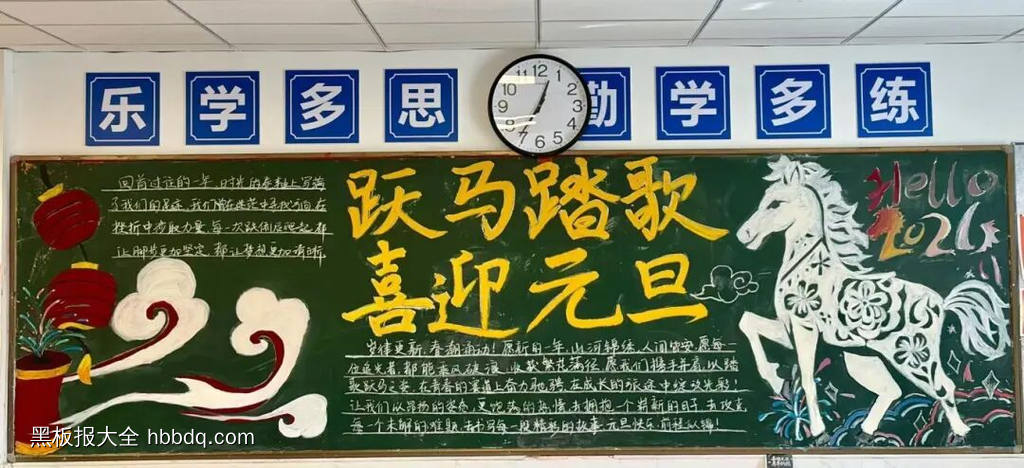 乐学多思 勤学多练
12 1 2 3 4 5 6 7 8 9 10 11
回首过往的一年,时光的卷轴上写满
了我们的足迹,我们曾在迷茫中寻找方向,在
挫折中汲取力量,每一次跌倒后爬起,都
让脚步更加坚定,都让梦想更加清晰。
跃马踏歌
喜迎元旦
Hello
2026
岁律更新,春潮涌动!愿新的一年,山河锦绣,人间皆安,愿每一
位追光者都能乘风破浪,收获繁花满径,愿我们携手并肩,以踏
歌跃马之姿,在青春的赛道上奋力驰骋,在成长的旅途中绽放光彩!
让我们以昂扬的姿态,更饱满的热情,去拥抱一个崭新的日子,去攻克
每一个未解的难题,去书写每一段精彩的故事,元旦快乐,前程似锦!
黑板报大全 hbbdq.com